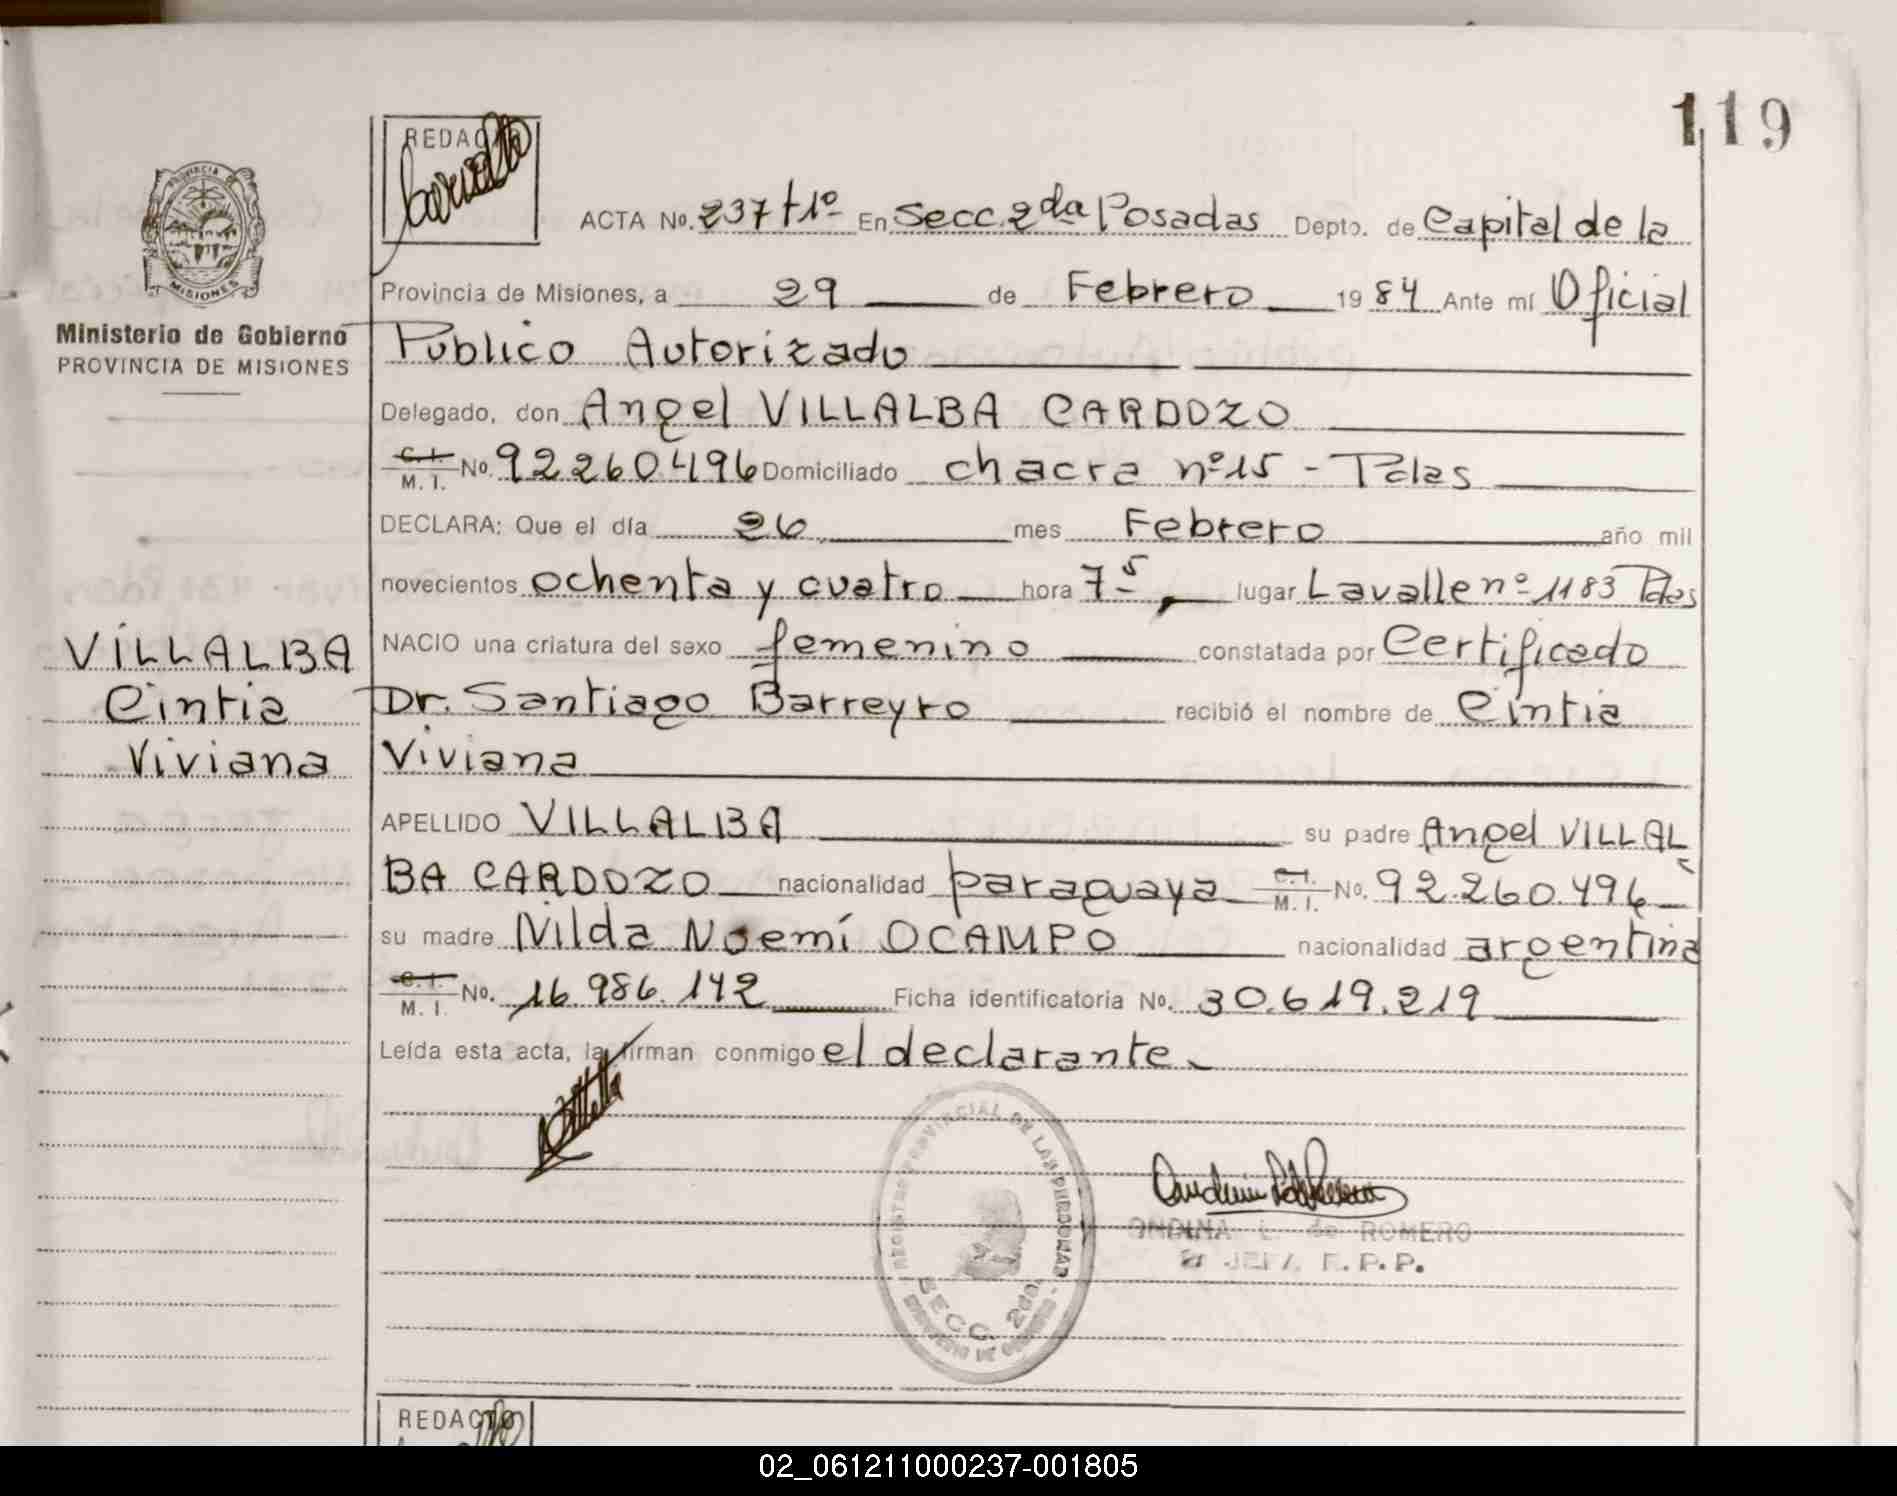 119
REDACTO
ACTA No. 237 t 1º En Secc. 2da Posadas Depto. de Capital de la
PROVINCIA DE
MISIONES
Provincia de Misiones, a 29 de Febrero 1984 Ante mí Oficial
Ministerio de Gobierno
PROVINCIA DE MISIONES
Publico Autorizado
Delegado, don Angel VILLALBA CARDOZO
C. I. M. I. No. 92260496 Domiciliado chacra nº 15 - Pdas
DECLARA: Que el día 26 mes Febrero año mil
novecientos ochenta y cuatro hora 7 5 lugar Lavalle nº 1183 Pdas
VILLALBA
Cintia
Viviana
NACIO una criatura del sexo femenino constatada por Certificado
Dr. Santiago Barreyro recibió el nombre de Cintia
Viviana
APELLIDO VILLALBA su padre Angel VILLAL
BA CARDOZO nacionalidad paraguaya C. I. M. I. No. 92.260.496
su madre Nilda Noemí OCAMPO nacionalidad argentina
C. I. M. I. No. 16.986.142 Ficha identificatoria No. 30.619.219
Leída esta acta, la firman conmigo el declarante
REGISTRO PROVINCIAL DE LAS PERSONAS
SECC. 2da.
MINISTERIO DE GOBIERNO
ONDINA L. de ROMERO
JEFA R.P.P.
REDACTO
02_061211000237-001805